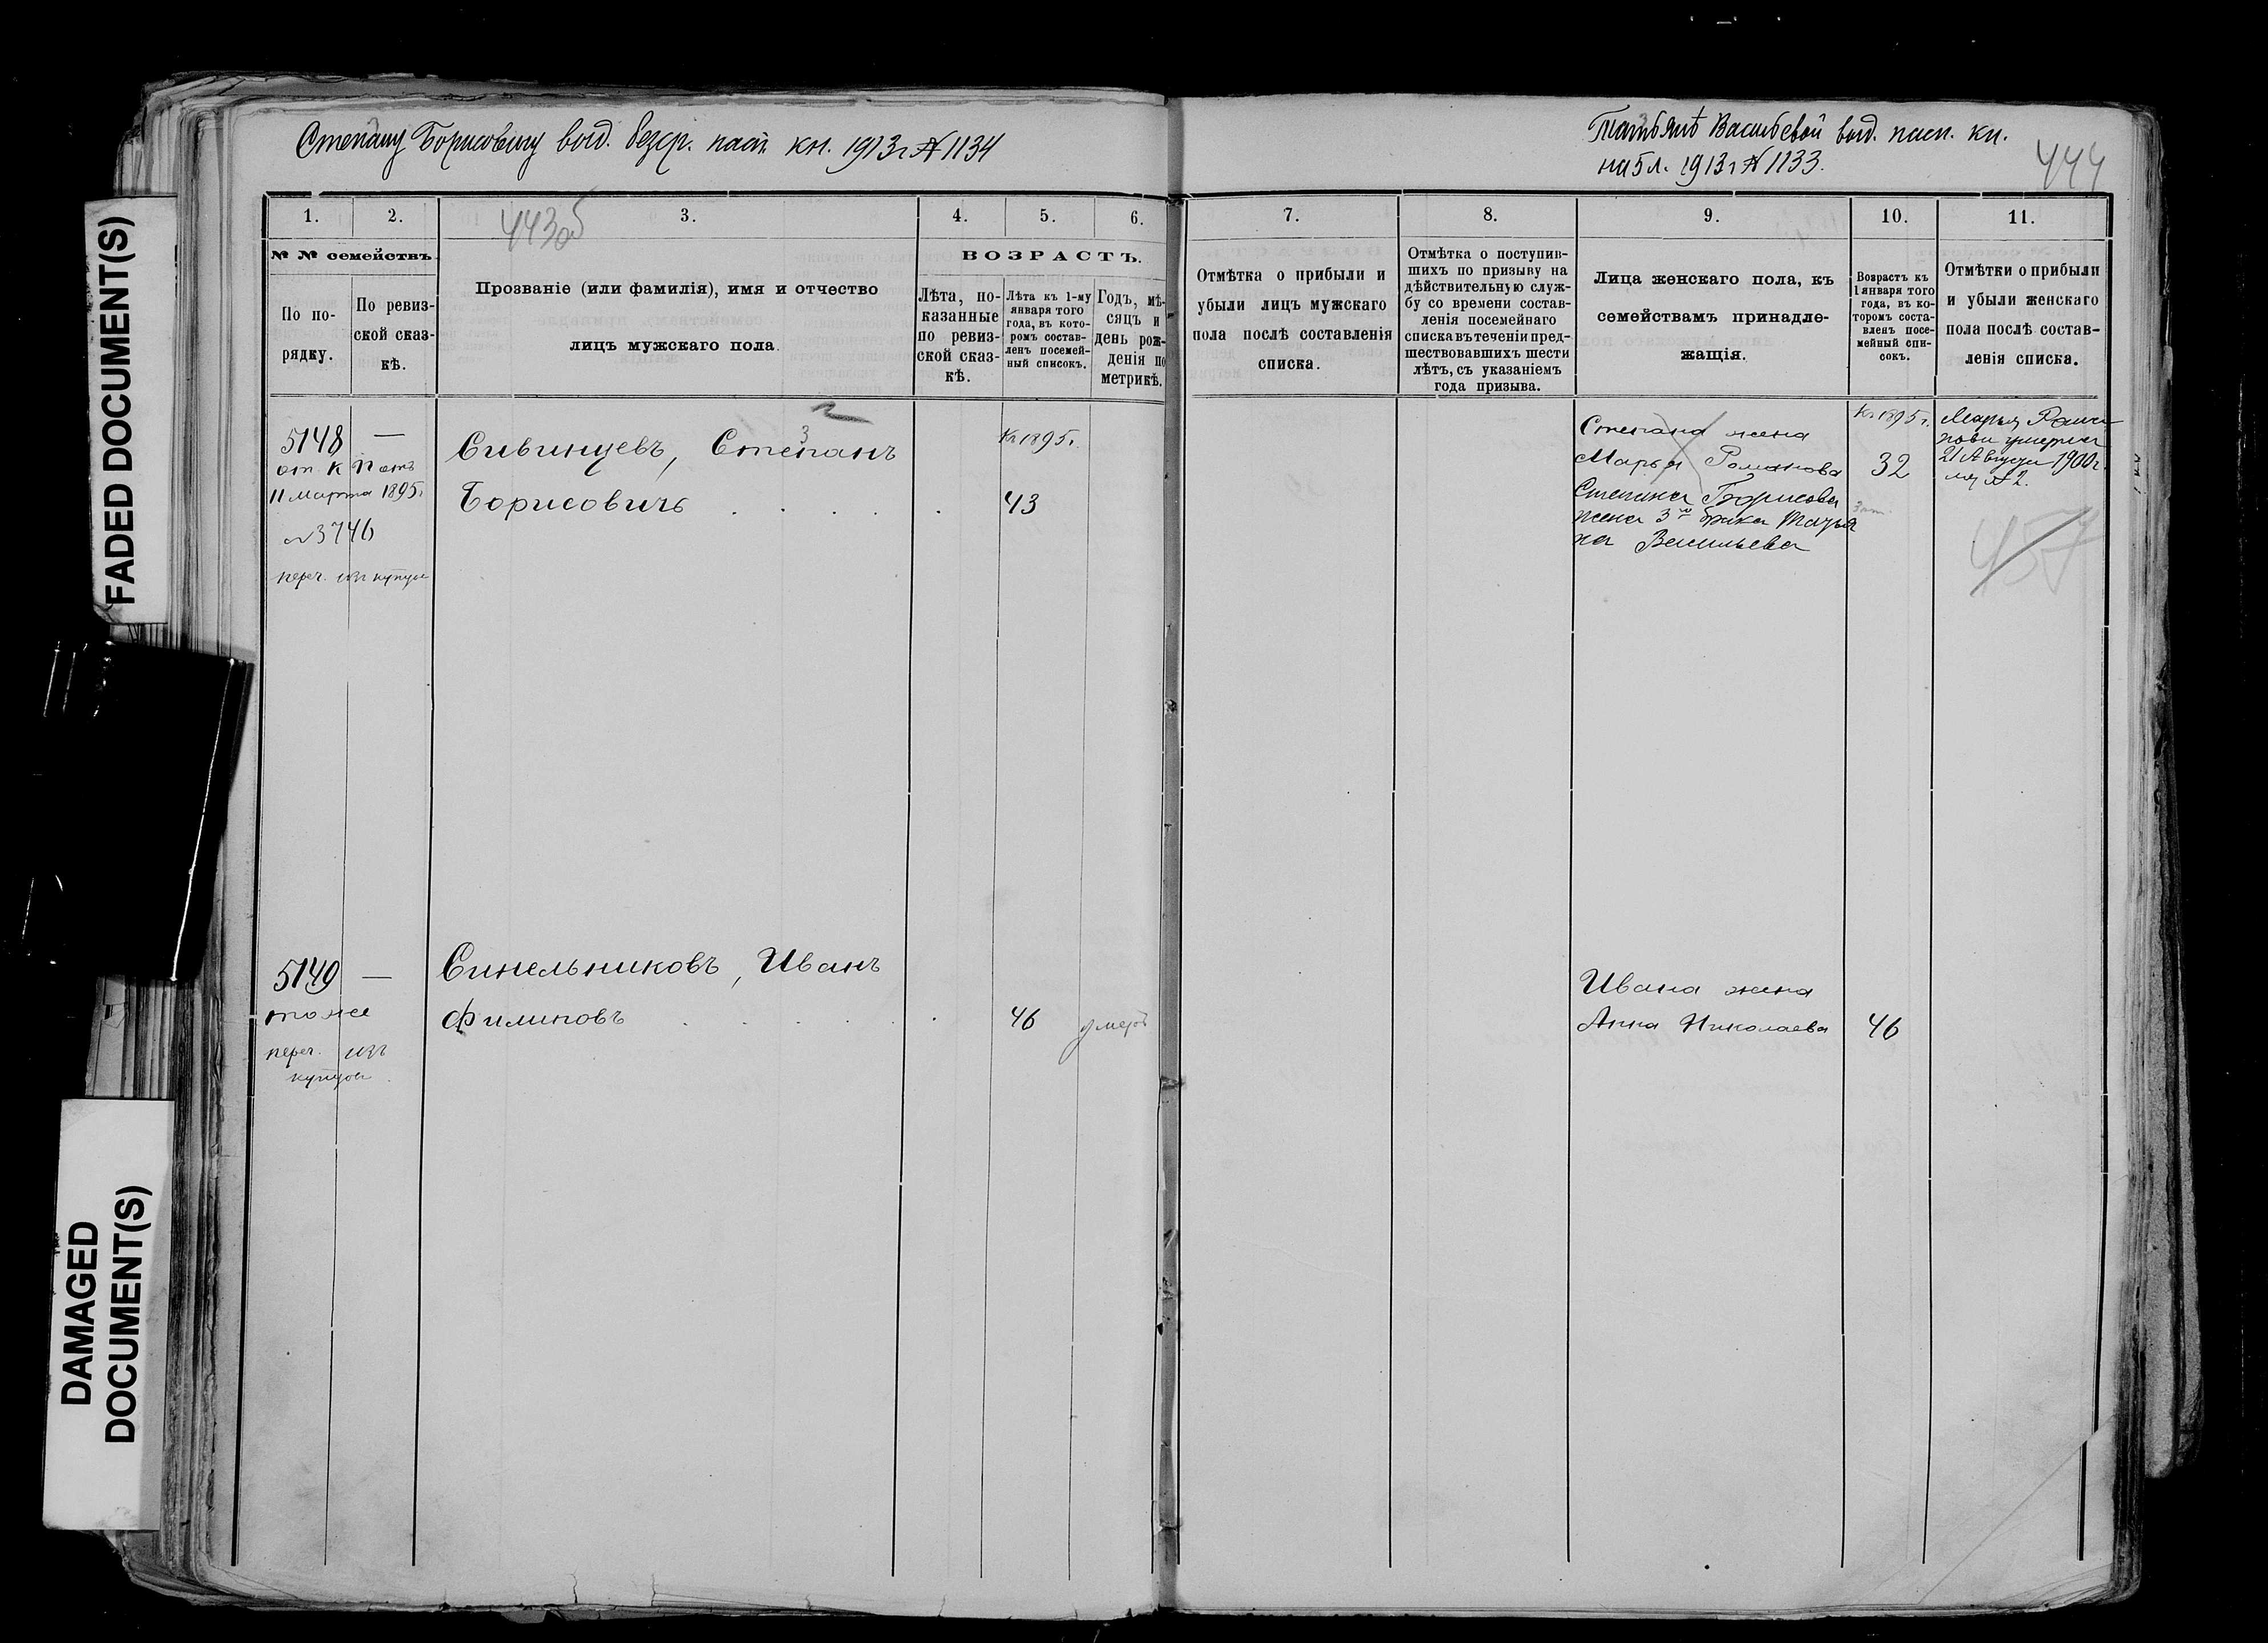 Степану Борисовичу выд. безср. пасп. кн. 1913 г № 1134
Татьянѣ Васильевой выд. пасп. кн.
на 5 л. 1913 г № 1133.
444
443об
1. 2. 3. 4. 5. 6. 7. 8. 9. 10. 11.
№ № семействъ
По по-
рядку.
По ревиз-
ской сказ-
кѣ.
Прозваніе (или фамилія), имя и отчество
лицъ мужскаго пола.
ВОЗРАСТЪ.
Лѣта, по-
казанные
по ревиз-
ской сказ-
кѣ.
Лѣта къ 1-му
января того
года, въ кото-
ромъ состав-
ленъ посемей-
ный списокъ.
Годъ, мѣ-
сяцъ и
день рож-
денія по
метрикѣ.
Отмѣтка о прибыли и
убыли лицъ мужскаго
пола послѣ составленія
списка.
Отмѣтка о поступив-
шихъ по призыву на
дѣйствительную служ-
бу со времени состав-
ленія посемейнаго
списка въ теченіи пред-
шествовавшихъ шести
лѣтъ, съ указаніемъ
года призыва.
Лица женскаго пола, къ
семействамъ принадле-
жащія.
Возрастъ къ
1 января того
года, въ ко-
торомъ соста-
вленъ посе-
мейный спи-
сокъ.
Отмѣтки о прибыли
и убыли женскаго
пола послѣ состав-
ленія списка.
5148 —
от. К. Пат.
11 марта 1895 г
№ 3746
переч. изъ купцов
3
Сивинцевъ, Степанъ
Борисовичъ . . . . .
Къ 1895 г.
43
Степана жена
Марья Романова
Степана Борисова
жена 3го брака Татья
на Васильева
Къ 1895 г.
32
Марья Рома
нова умерла
21 Августа 1900 г.
№ 2.
457
5149 —
тоже
переч. изъ
купцовъ
Синельниковъ, Иванъ
Филиповъ . . . . . .
46
умеръ
Ивана жена
Анна Николаева
46
FADED DOCUMENT(S)
DAMAGED
DOCUMENT(S)